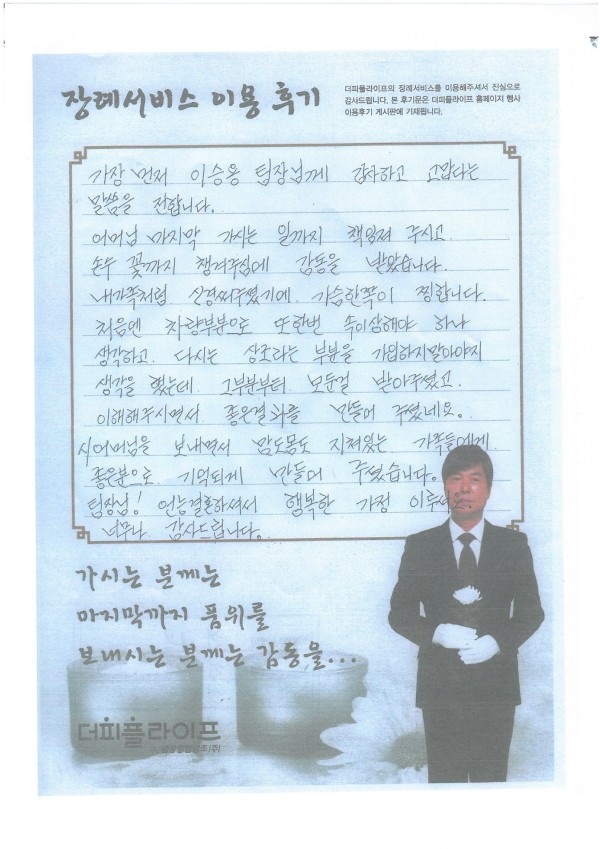 장례서비스 이용 후기
더피플라이프의 장례서비스를 이용해주셔서 진심으로
감사드립니다. 본 후기문은 더피플라이프 홈페이지 행사
이용후기 게시판에 기재됩니다.
가장 먼저 이승용 팀장님께 감사하고 고맙다는
말씀을 전합니다.
어머님 마지막 가시는 일까지 책임져 주시고
손수 꽃까지 챙겨주심에 감동을 받았습니다.
내가족처럼 신경써주셨기에 가슴한쪽이 찡합니다.
처음엔 차량부분으로 또한번 속이상해야 하나
생각하고. 다시는 상조라는 부분을 가입하지말아야지
생각을 했는데 그부분부터 모든걸 받아주셨고
이해해주시면서 좋은결과를 만들어 주셨네요.
시어머님을 보내면서 맘도몸도 지쳐있는 가족들에게
좋은분으로 기억되게 만들어 주셨습니다.
팀장님! 언능결혼하셔서 행복한 가정 이루세요.
너무나 감사드립니다.
가시는 분께는
마지막까지 품위를
보내시는 분께는 감동을...
더피플라이프